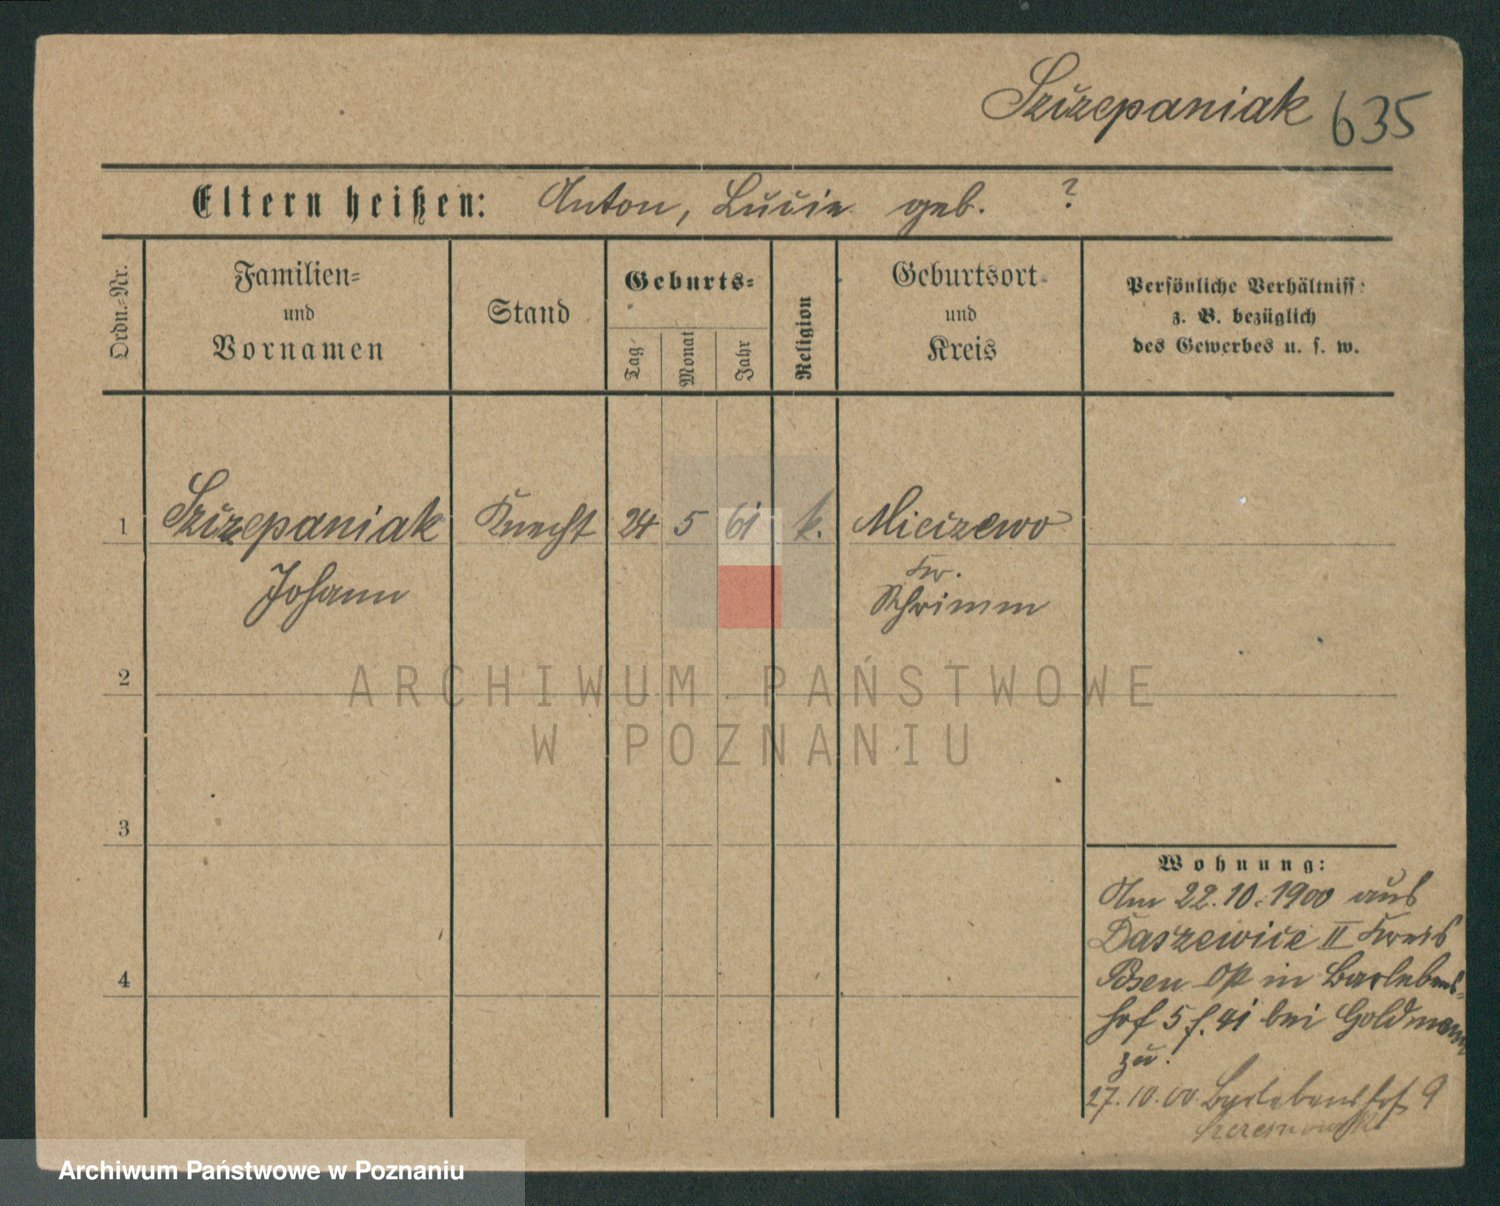 Szczepaniak 635
Eltern heißen: Anton, Lucie geb. ?
Ordn.-Nr.
Familien-
und
Vornamen
Stand
Geburts-
Tag
Monat
Jahr
Religion
Geburtsort
und
Kreis
Persönliche Verhältniss
z. B. bezüglich
des Gewerbes u. s. w.
1 Szczepaniak Knecht 24 5 61 k. Mieczewo
Johann
Kr.
Schrimm
2
3
4
Wohnung:
Am 22.10.1900 aus
Daszewice II Kreis
Posen in Barlebens-
hof 5 bei Goldmann
zu.
27.10.00 Barlebenshof 9
ARCHIWUM PAŃSTWOWE
W POZNANIU
Archiwum Państwowe w Poznaniu